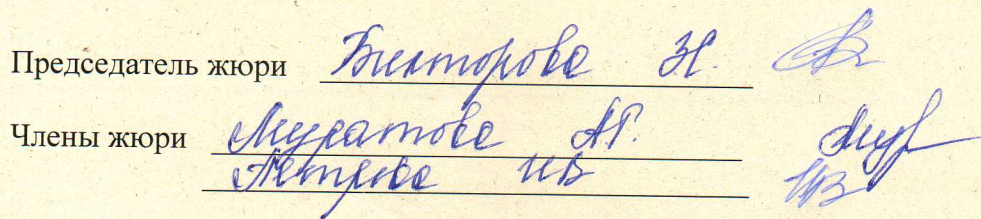 Председатель жюри Бикторова Н.
Члены жюри Муратова А.Г.
Петрова И В